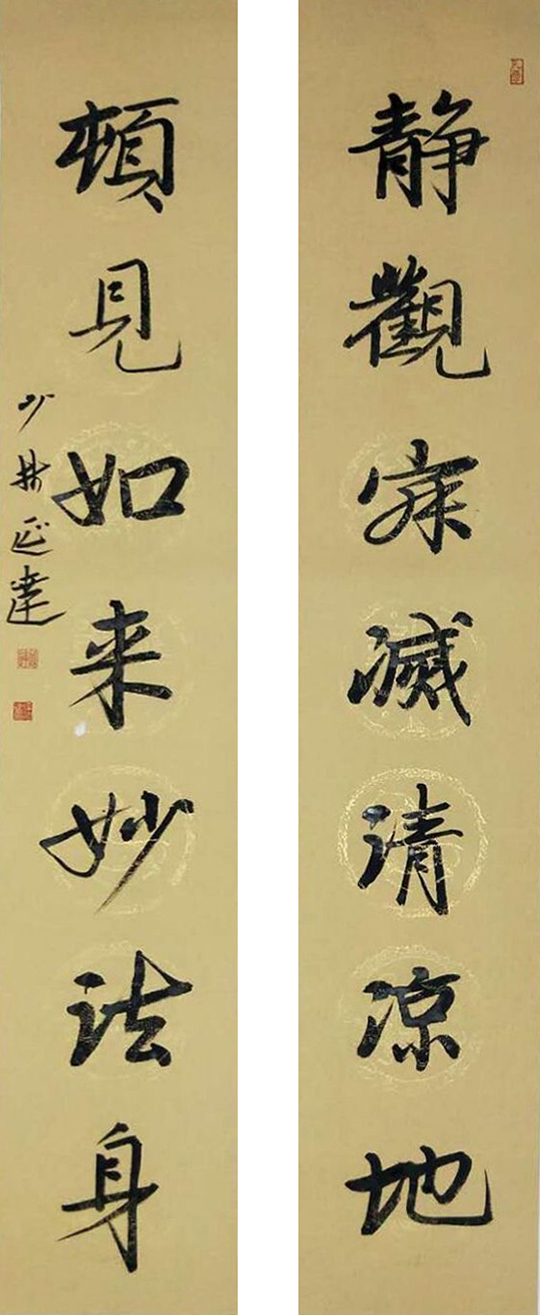 靜觀寂滅清凉地
頓見如来妙法身
少林延達